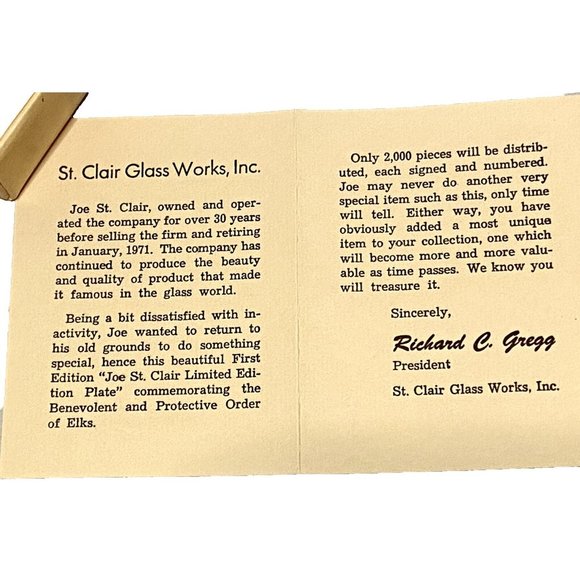 St. Clair Glass Works, Inc.
Joe St. Clair, owned and oper-
ated the company for over 30 years
before selling the firm and retiring
in January, 1971. The company has
continued to produce the beauty
and quality of product that made
it famous in the glass world.
Being a bit dissatisfied with in-
activity, Joe wanted to return to
his old grounds to do something
special, hence this beautiful First
Edition "Joe St. Clair Limited Edi-
tion Plate" commemorating the
Benevolent and Protective Order
of Elks.
Only 2,000 pieces will be distrib-
uted, each signed and numbered.
Joe may never do another very
special item such as this, only time
will tell. Either way, you have
obviously added a most unique
item to your collection, one which
will become more and more valu-
able as time passes. We know you
will treasure it.
Sincerely,
Richard C. Gregg
President
St. Clair Glass Works, Inc.